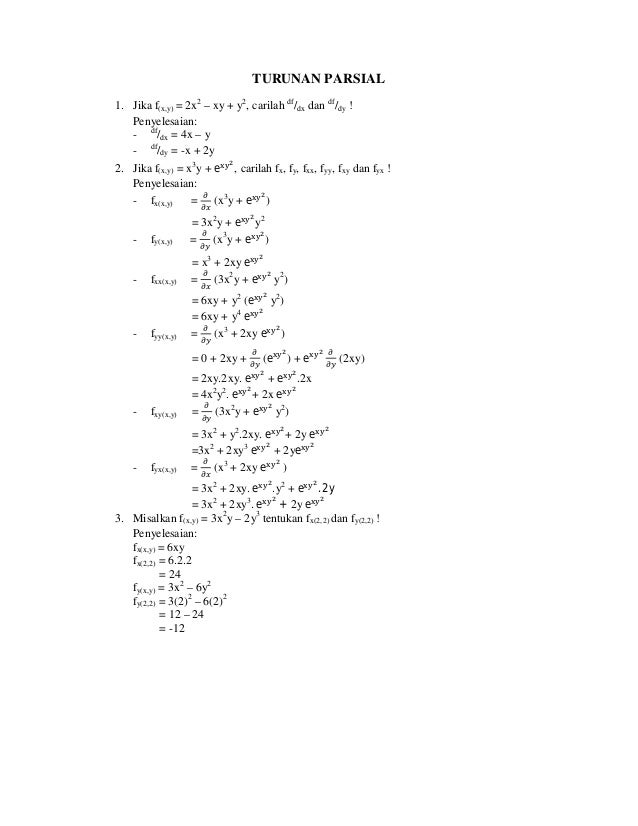 TURUNAN PARSIAL
1. Jika f(x,y) = 2x² – xy + y², carilah df/dx dan df/dy !
Penyelesaian:
- df/dx = 4x – y
- df/dy = -x + 2y
2. Jika f(x,y) = x³y + e^xy², carilah fx, fy, fxx, fyy, fxy dan fyx !
Penyelesaian:
- fx(x,y) = ∂/∂x (x³y + e^xy²)
= 3x²y + e^xy² y²
- fy(x,y) = ∂/∂y (x³y + e^xy²)
= x³ + 2xy e^xy²
- fxx(x,y) = ∂/∂x (3x²y + e^xy² y²)
= 6xy + y² (e^xy² y²)
= 6xy + y⁴ e^xy²
- fyy(x,y) = ∂/∂y (x³ + 2xy e^xy²)
= 0 + 2xy + ∂/∂y (e^xy²) + e^xy² ∂/∂y (2xy)
= 2xy.2xy. e^xy² + e^xy².2x
= 4x²y². e^xy² + 2x e^xy²
- fxy(x,y) = ∂/∂y (3x²y + e^xy² y²)
= 3x² + y².2xy. e^xy² + 2y e^xy²
=3x² + 2xy³ e^xy² + 2ye^xy²
- fyx(x,y) = ∂/∂x (x³ + 2xy e^xy² )
= 3x² + 2xy. e^xy².y² + e^xy².2y
= 3x² + 2xy³. e^xy² + 2y e^xy²
3. Misalkan f(x,y) = 3x²y – 2y³ tentukan fx(2,2) dan fy(2,2) !
Penyelesaian:
fx(x,y) = 6xy
fx(2,2) = 6.2.2
= 24
fy(x,y) = 3x² – 6y²
fy(2,2) = 3(2)² – 6(2)²
= 12 – 24
= -12